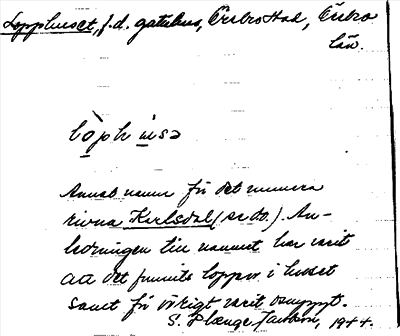 Lopphuset, f.d. gatuhus, Örebro stad, Örebro
län.
lòphusa
Annat namn för det numera
rivna Karlsdal (se do.). An-
ledningen till namnet har varit
att det funnits loppor i huset
samt för övrigt varit osnyggt.
S. Plænge Jacobson, 1944.